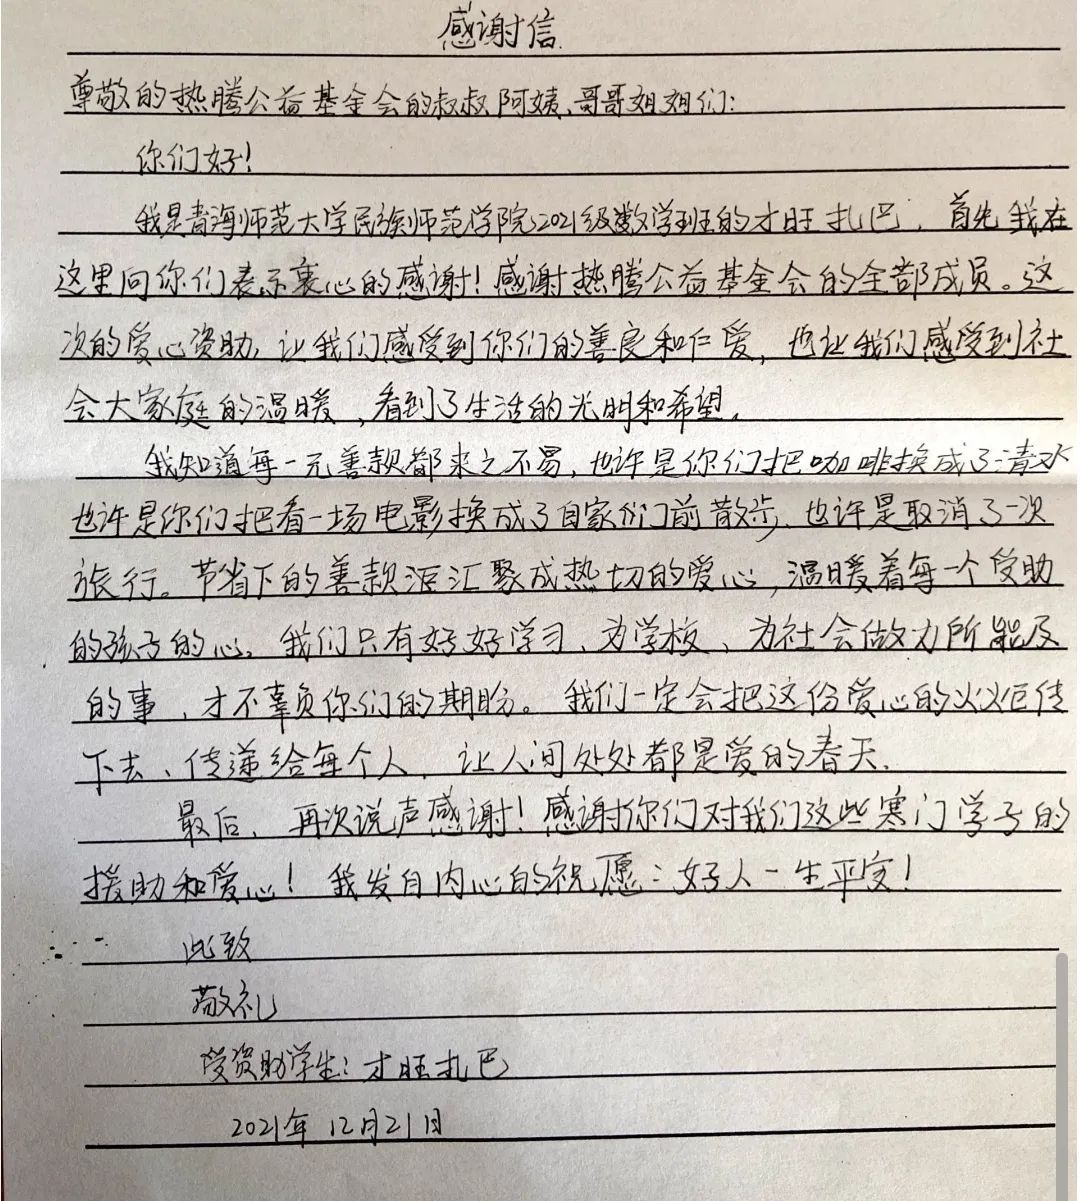 感谢信
尊敬的热腾公益基金会的叔叔阿姨、哥哥姐姐们：
你们好！
我是青海师范大学民族师范学院2021级数学班的才旺扎巴，首先我在
这里向你们表示衷心的感谢！感谢热腾公益基金会的全部成员。这
次的爱心资助，让我们感受到你们的善良和仁爱，也让我们感受到社
会大家庭的温暖，看到了生活的光明和希望。
我知道每一元善款都来之不易，也许是你们把咖啡换成了清水
也许是你们把看一场电影换成了自家门前散步，也许是取消了一次
旅行。节省下的善款汇聚成热切的爱心，温暖着每一个受助
的孩子的心。我们只有好好学习，为学校、为社会做力所能及
的事，才不辜负你们的期盼。我们一定会把这份爱心的火炬传
下去、传递给每个人，让人间处处都是爱的春天。
最后，再次说声感谢！感谢你们对我们这些寒门学子的
援助和爱心！我发自内心的祝愿：好人一生平安！
此致
敬礼
受资助学生：才旺扎巴
2021年12月21日